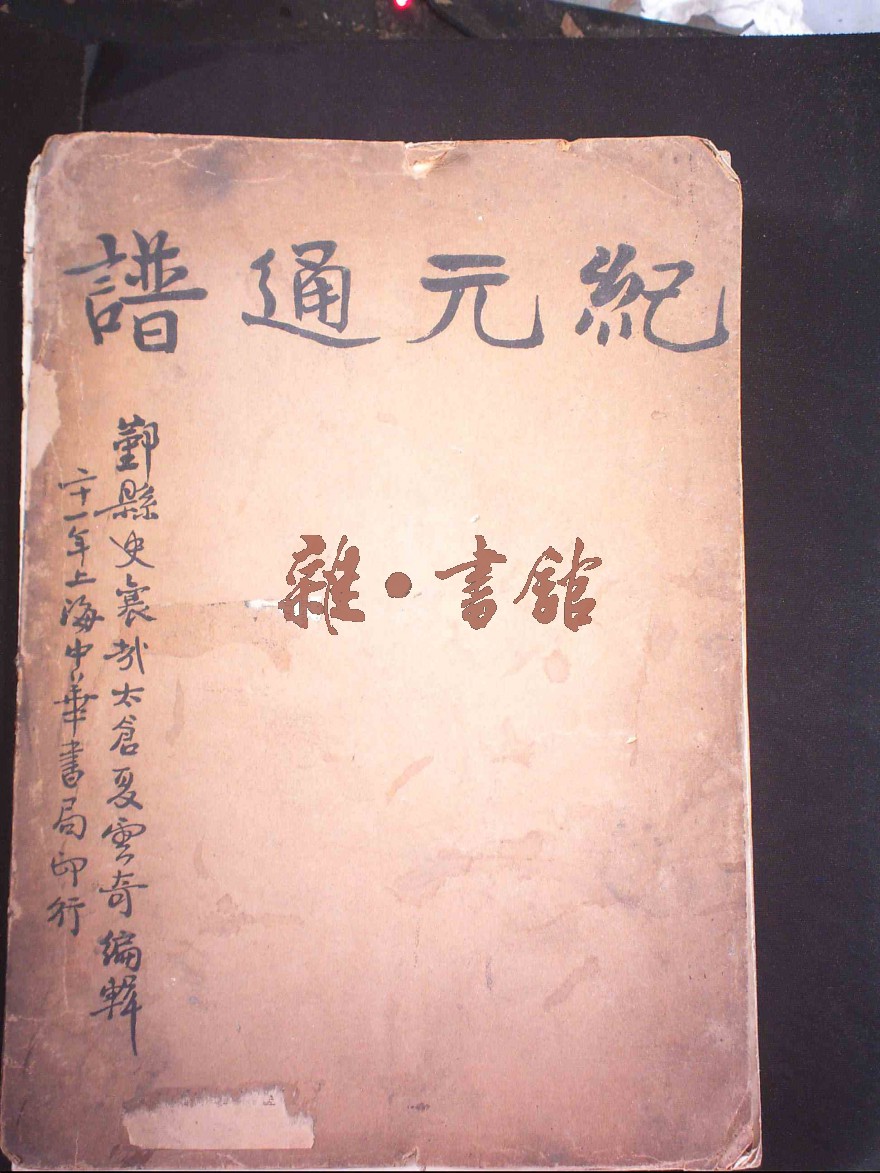 紀元通譜
鄞縣史襄哉太倉夏雲奇編輯
二十一年上海中華書局印行
雜·書館